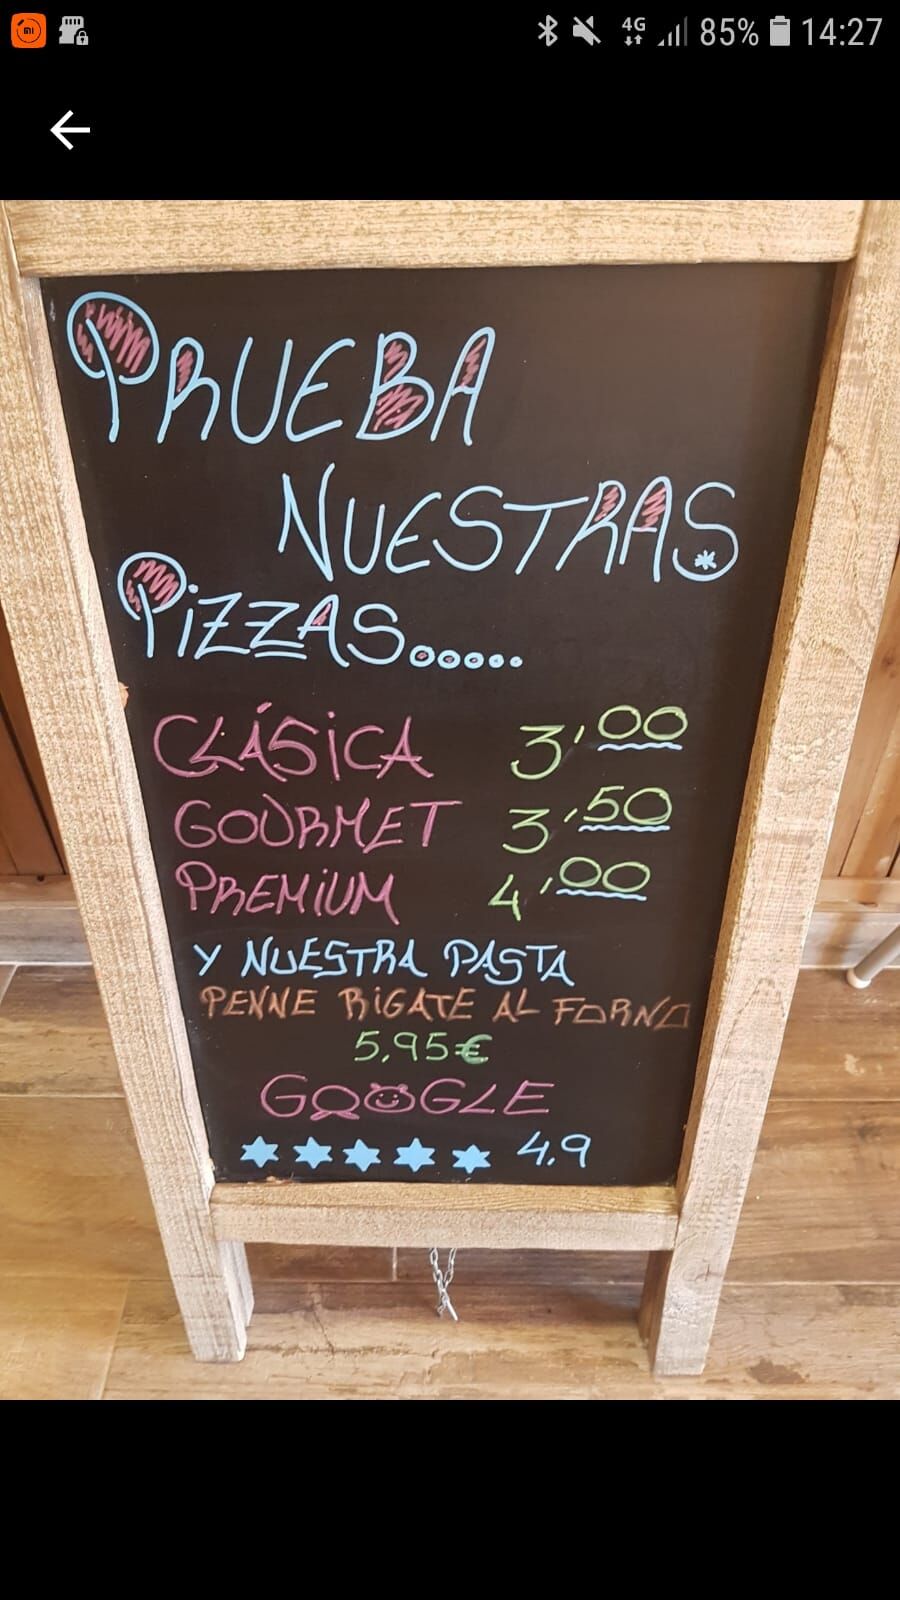 14:27
85%
4G
PRUEBA
NUESTRAS
PIZZAS.....
CLÁSICA 3'00
GOURMET 3'50
PREMIUM 4'00
Y NUESTRA PASTA
PENNE RIGATE AL FORNO
5,95€
GOOGLE
★★★★★ 4,9